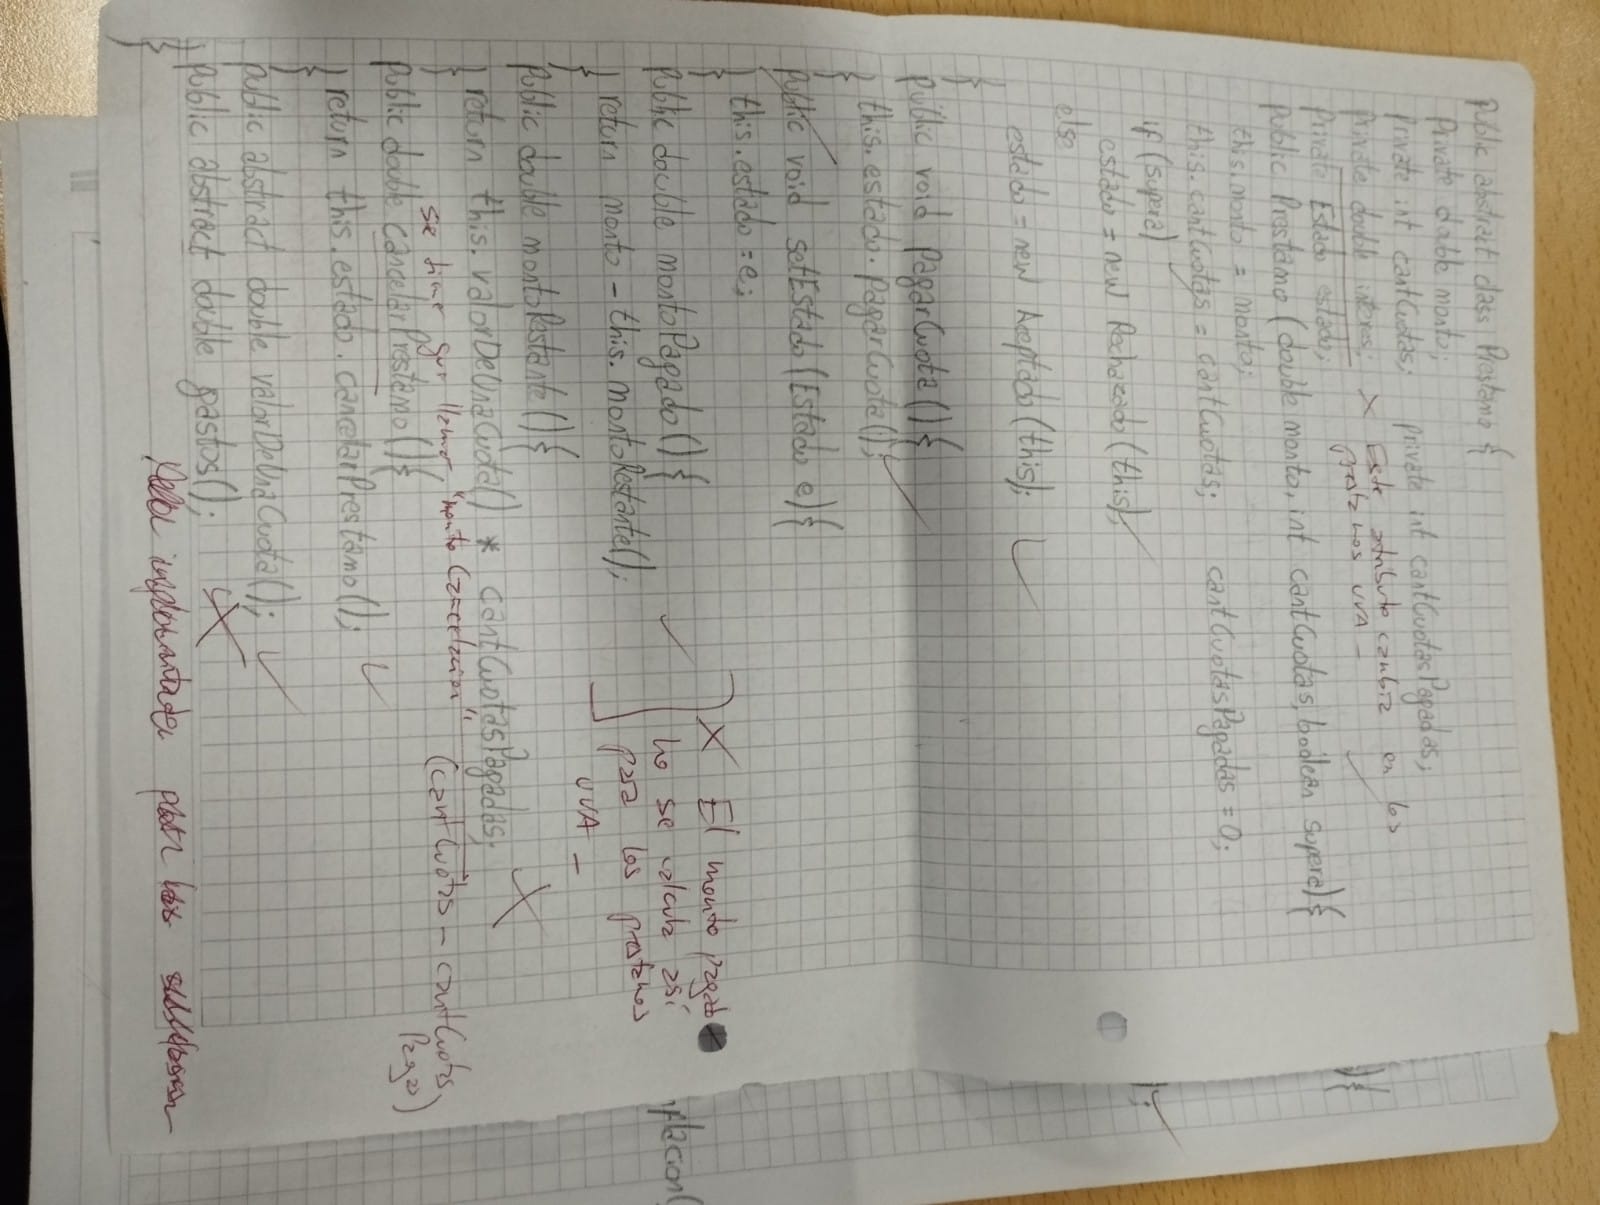 public abstract class Prestamo {
private double monto;
private int cantCuotas; private int cantCuotasPagadas;
private double interes; X Este atributo cambia en los
prestamos UVA -
private Estado estado;
public Prestamo (double monto, int cantCuotas, boolean supera){
this.monto = monto;
this.cantCuotas = cantCuotas; cantCuotasPagadas = 0;
if (supera)
estado = new Rechazado (this);
else
estado = new Aceptado (this);
}
public void pagarCuota () {
this.estado.pagarCuota();
}
public void setEstado (Estado e) {
this.estado = e;
}
public double montoPagado () {
return monto - this.montoRestante();
}
X El monto pagado
no se calcula así
para los prestamos
UVA -
public double montoRestante () {
return this.valorDeUnaCuota() * cantCuotasPagadas;
}
se tiene que llamar "monto Cancelacion" (cantCuotas - cantCuotas
Pagas)
public double cancelarPrestamo () {
return this.estado.cancelarPrestamo();
}
public abstract double valorDeUnaCuota();
public abstract double gastos(); X
}
};
nflacion(